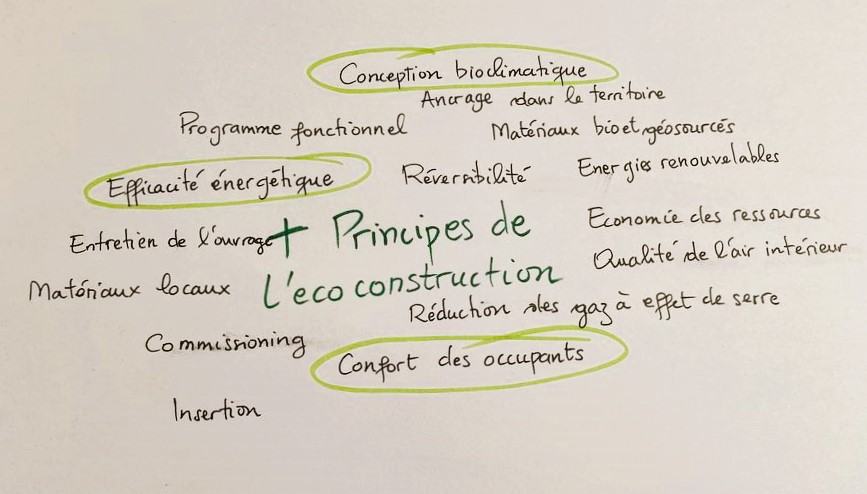 Conception bioclimatique
Ancrage dans le territoire
Programme fonctionnel
Matériaux bio et géosourcés
Energies renouvelables
Réversibilité
Efficacité énergétique
Economie des ressources
Entretien de l'ouvrage
+ Principes de
L'eco construction
Qualité de l'air intérieur
Matériaux locaux
Réduction des gaz à effet de serre
Commissioning
Confort des occupants
Insertion